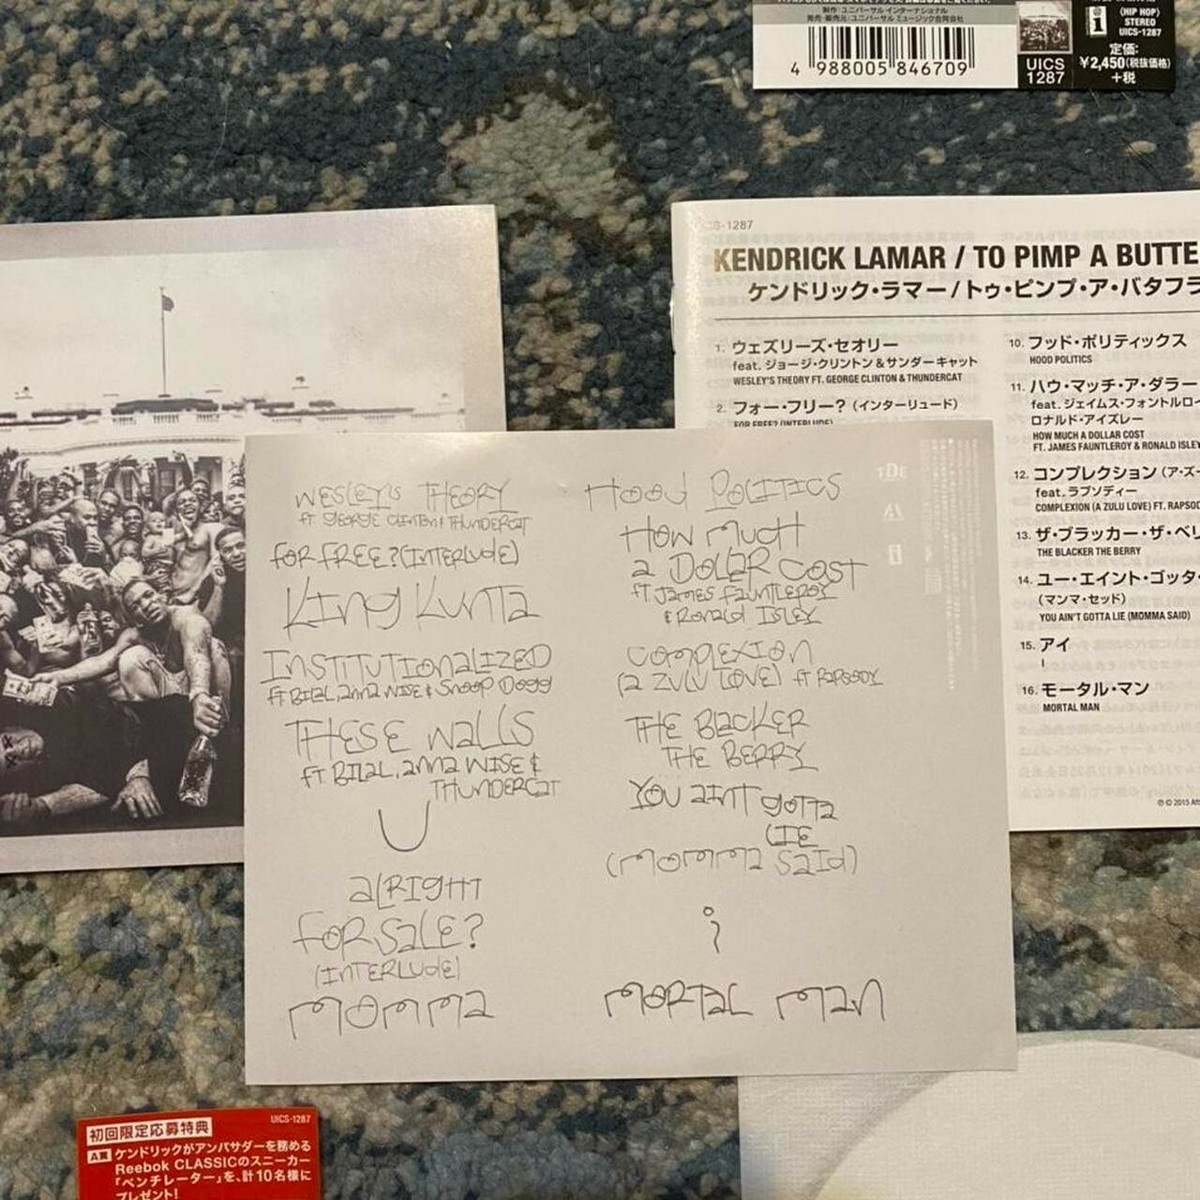 制作：ユニバーサル インターナショナル
発売・販売元：ユニバーサル ミュージック合同会社
4 988005 846709
UICS
1287
(HIP HOP)
STEREO
UICS-1287
定価:
¥2,450(税抜価格)
+税
-1287
KENDRICK LAMAR / TO PIMP A BUTTE
ケンドリック・ラマー / トゥ・ピンプ・ア・バタフラ
1. ウェズリーズ・セオリー
feat. ジョージ・クリントン & サンダーキャット
WESLEY'S THEORY FT. GEORGE CLINTON & THUNDERCAT
2. フォー・フリー？（インタールード）
FOR FREE? (INTERLUDE)
10. フッド・ポリティックス
HOOD POLITICS
11. ハウ・マッチ・ア・ダラー
feat. ジェイムス・フォントルロイ
ロナルド・アイズレー
HOW MUCH A DOLLAR COST
FT. JAMES FAUNTLEROY & RONALD ISLEY
12. コンプレクション（ア・ズー
feat. ラプソディー
COMPLEXION (A ZULU LOVE) FT. RAPSOD
13. ザ・ブラッカー・ザ・ベリ
THE BLACKER THE BERRY
14. ユー・エイント・ゴッタ・
（マンマ・セッド）
YOU AIN'T GOTTA LIE (MOMMA SAID)
15. アイ
I
16. モータル・マン
MORTAL MAN
WESLEY'S THEORY
FT GEORGE CLINTON & THUNDERCAT
FOR FREE? (INTERLUDE)
KING KUNTA
INSTITUTIONALIZED
FT BILAL, ANNA WISE & SNOOP DOGG
THESE WALLS
FT. BILAL, ANNA WISE &
THUNDERCAT
U
ALRIGHT
FOR SALE?
(INTERLUDE)
MOMMA
HOOD POLITICS
HOW MUCH
A DOLLAR COST
FT. JAMES FAUNTLEROY
& RONALD ISLEY
COMPLEXION
(A ZULU LOVE) FT RAPSODY
THE BLACKER
THE BERRY
YOU AINT GOTTA
LIE
(MOMMA SAID)
i
MORTAL MAN
TDE
UICS-1287
初回限定応募特典
A賞 ケンドリックがアンバサダーを務める
Reebok CLASSICのスニーカー
「ベンチレーター」を、計10名様に
プレゼント!